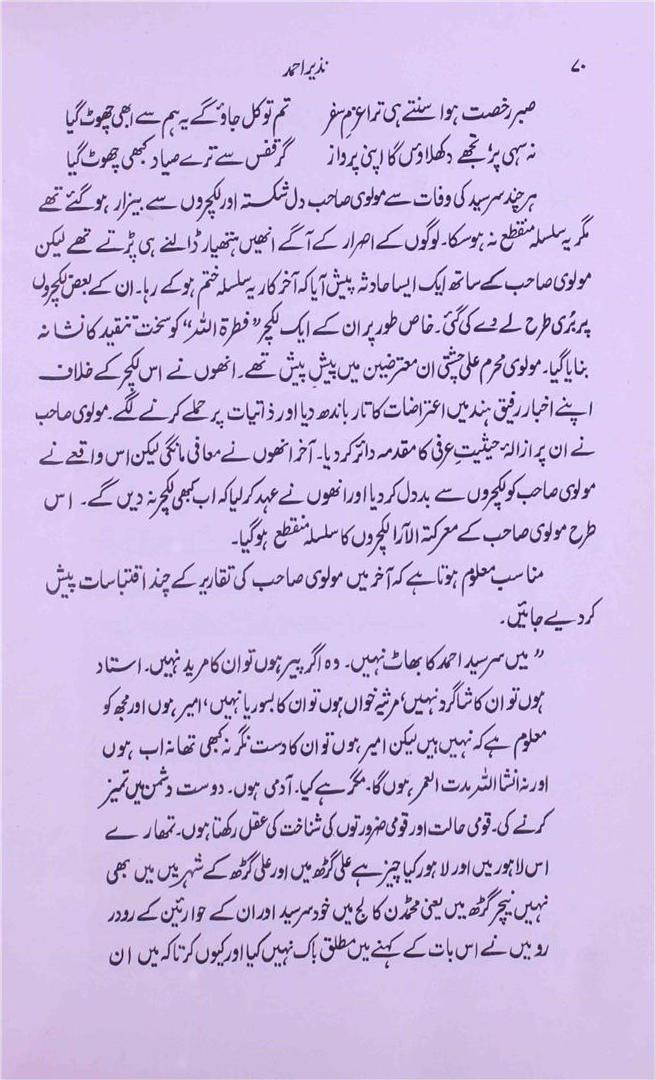 ۷۰
نذیر احمد
صبر رخصت ہوا سنتے ہی ترا عزمِ سفر تم تو کل جاؤ گے یہ ہم سے ابھی چھوٹ گیا
نہ سہی پر تجھے دکھلاؤں گا اپنی پرواز گر قفس سے ترے صیاد کبھی چھوٹ گیا
ہر چند سرسید کی وفات سے مولوی صاحب دل شکستہ اور لکچروں سے بیزار ہو گئے تھے
مگر یہ سلسلہ منقطع نہ ہوسکا۔ لوگوں کے اصرار کے آگے انھیں ہتھیار ڈالنے ہی پڑتے تھے لیکن
مولوی صاحب کے ساتھ ایک ایسا حادثہ پیش آیا کہ آخر کار یہ سلسلہ ختم ہو کے رہا۔ ان کے بعض لکچروں
پر بُری طرح لے دے کی گئی۔ خاص طور پر ان کے ایک لکچر ”فطرۃ اللہ“ کو سخت تنقید کا نشانہ
بنایا گیا۔ مولوی محرم علی چشتی ان معترضین میں پیش پیش تھے۔ انھوں نے اس لکچر کے خلاف
اپنے اخبار رفیق ہند میں اعتراضات کا تار باندھ دیا اور ذاتیات پر حملے کرنے لگے۔ مولوی صاحب
نے ان پر ازالۂ حیثیتِ عرفی کا مقدمہ دائر کر دیا۔ آخر انھوں نے معافی مانگی لیکن اس واقعے نے
مولوی صاحب کو لکچروں سے بددل کر دیا اور انھوں نے عہد کر لیا کہ اب کبھی لکچر نہ دیں گے۔ اس
طرح مولوی صاحب کے معرکتہ الآرا لکچروں کا سلسلہ منقطع ہو گیا۔
مناسب معلوم ہوتا ہے کہ آخر میں مولوی صاحب کی تقاریر کے چند اقتباسات پیش
کر دیے جائیں۔
”میں سرسید احمد کا بھاٹ نہیں۔ وہ اگر پیر ہوں تو ان کا مرید نہیں۔ استاد
ہوں تو ان کا شاگرد نہیں، مرثیہ خواں ہوں تو ان کا بسوریا نہیں، امیر ہوں اور مجھ کو
معلوم ہے کہ نہیں ہیں لیکن امیر ہوں تو ان کا دست نگر نہ کبھی تھا نہ اب ہوں
اور نہ انشا اللہ مدت العمر ہوں گا۔ مگر ہے کیا۔ آدمی ہوں۔ دوست دشمن میں تمیز
کرنے کی۔ قومی حالت اور قومی ضرورتوں کی شناخت کی عقل رکھتا ہوں۔ تمھارے
اس لاہور میں اور لاہور کیا چیز ہے علی گڑھ میں اور علی گڑھ کے شہر میں میں بھی
نہیں نیچر گڑھ میں یعنی محمڈن کالج میں خود سرسید اور ان کے حوارئین کے رودر
رو میں نے اس بات کے کہنے میں مطلق باک نہیں کیا اور کیوں کرتا کہ میں ان